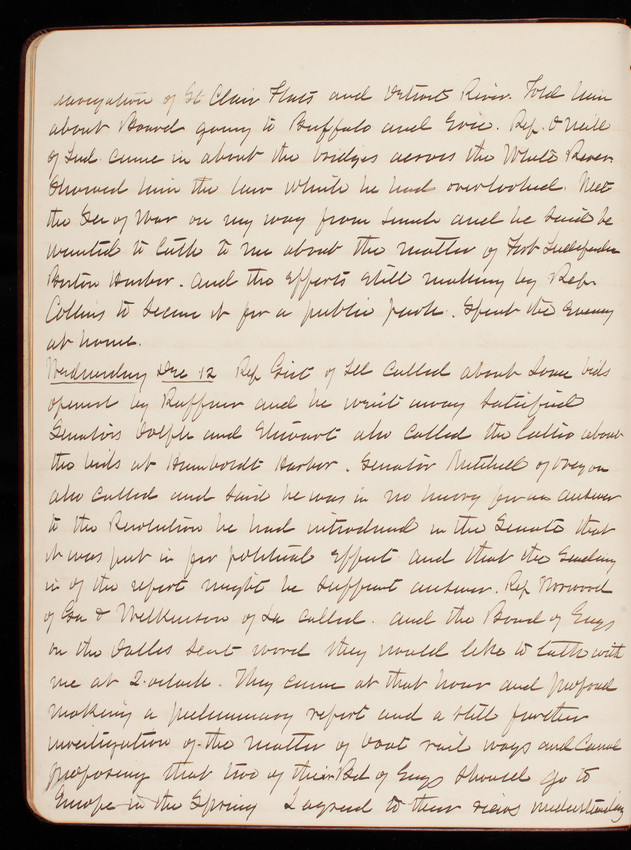 navigation of St Clair Flats and Detroit River. Told him
about Board going to Buffalo and Erie. Rep. O'Neill
of Ind. came in about the bridges across the White River
Showed him the law which he had overlooked. Met
the Sec of War on my way from lunch and he said he
wanted to talk to me about the matter of Fort Independence
Boston Harbor. and the efforts still making by Rep
Collins to secure it for a public park. Spent the evening
at home.
Wednesday Dec 12 Rep Gest of Ill called about some bids
opened by Ruffner and he went away satisfied
Senators Dolph and Stewart also called the latter about
the bids at Humboldt Harbor. Senator Mitchell of Oregon
also called and said he was in no hurry for an answer
to the Resolution he had introduced in the Senate that
it was put in for political effect and that the sending
in of the report might be sufficient answer. Rep Norwood
of Ga & Wilkinson of La called. and the Board of Engs
on the Dalles sent word they would like to talk with
me at 2. o'clock. They came at that hour and proposed
making a preliminary report and a still further
investigation of the matter of boat rail ways and Canal
proposing that two of their Bd of Engs should go to
Europe in the Spring I agreed to their views understanding